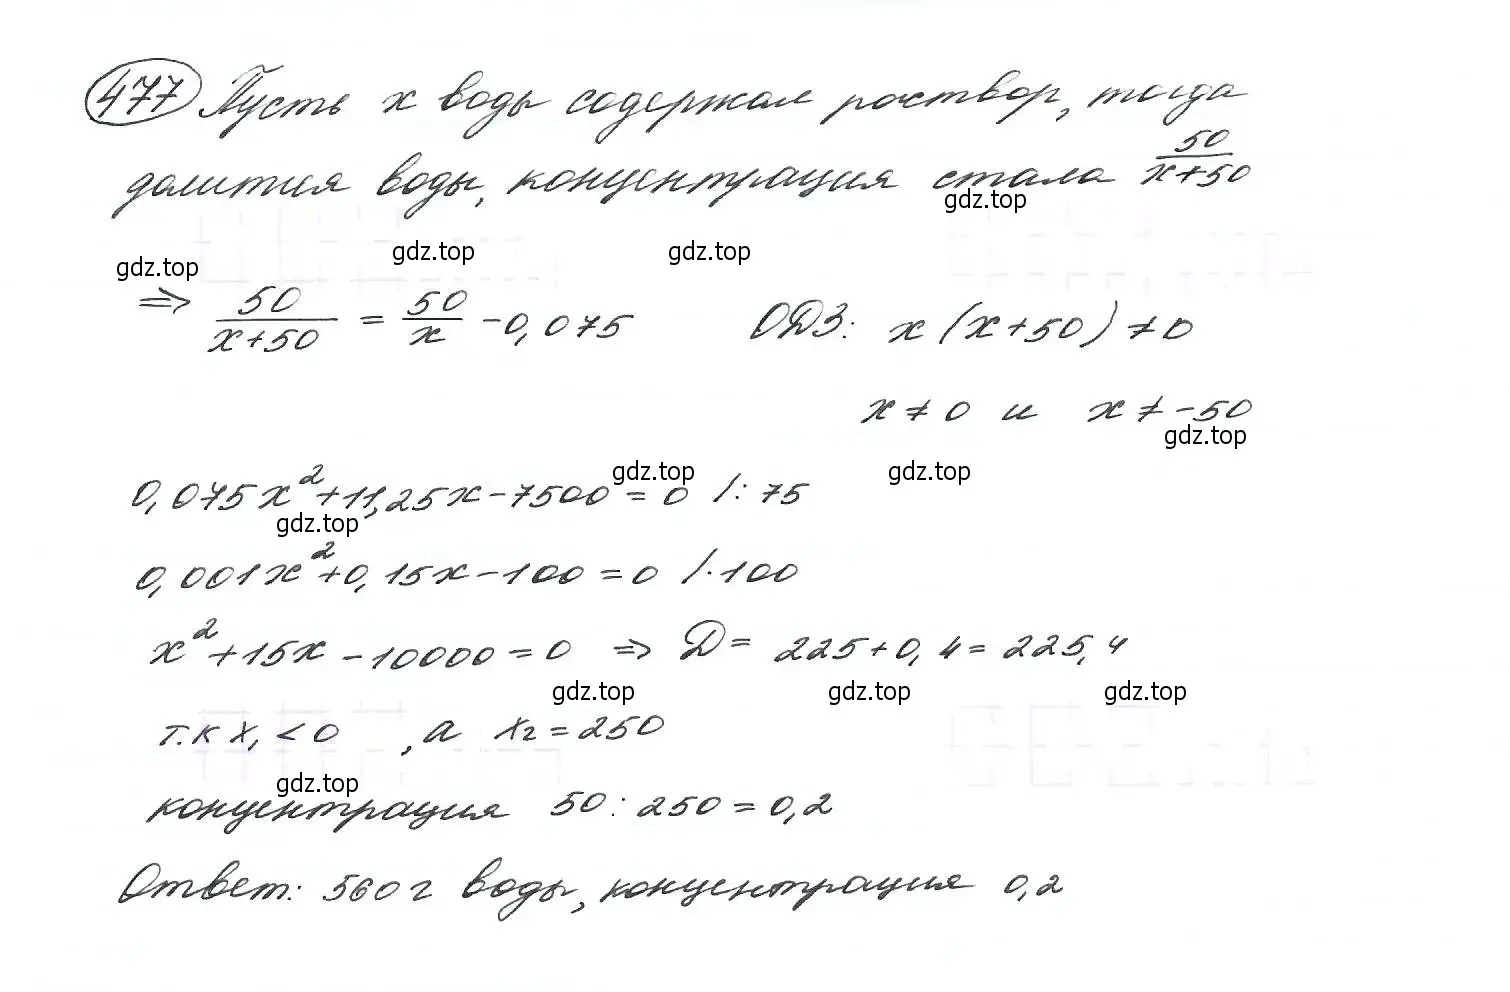 477 Пусть x воды содержал раствор, тогда
долития воды, концентрация стала 50/(x+50)
gdz.top
gdz.top gdz.top gdz.top
=> 50/(x+50) = 50/x - 0,075 ОДЗ: x(x+50) ≠ 0
x ≠ 0 и x ≠ -50
gdz.top
gdz.top gdz.top
0,075x² + 11,25x - 7500 = 0 /: 75
gdz.top
0,001x² + 0,15x - 100 = 0 /·100
x² + 15x - 10000 = 0 => D = 225 + 0,4 = 225,4
gdz.top gdz.top gdz.top
т.к x₁ < 0, а x₂ = 250
gdz.top
концентрация 50 : 250 = 0,2
Ответ: 560 г воды, концентрация 0,2